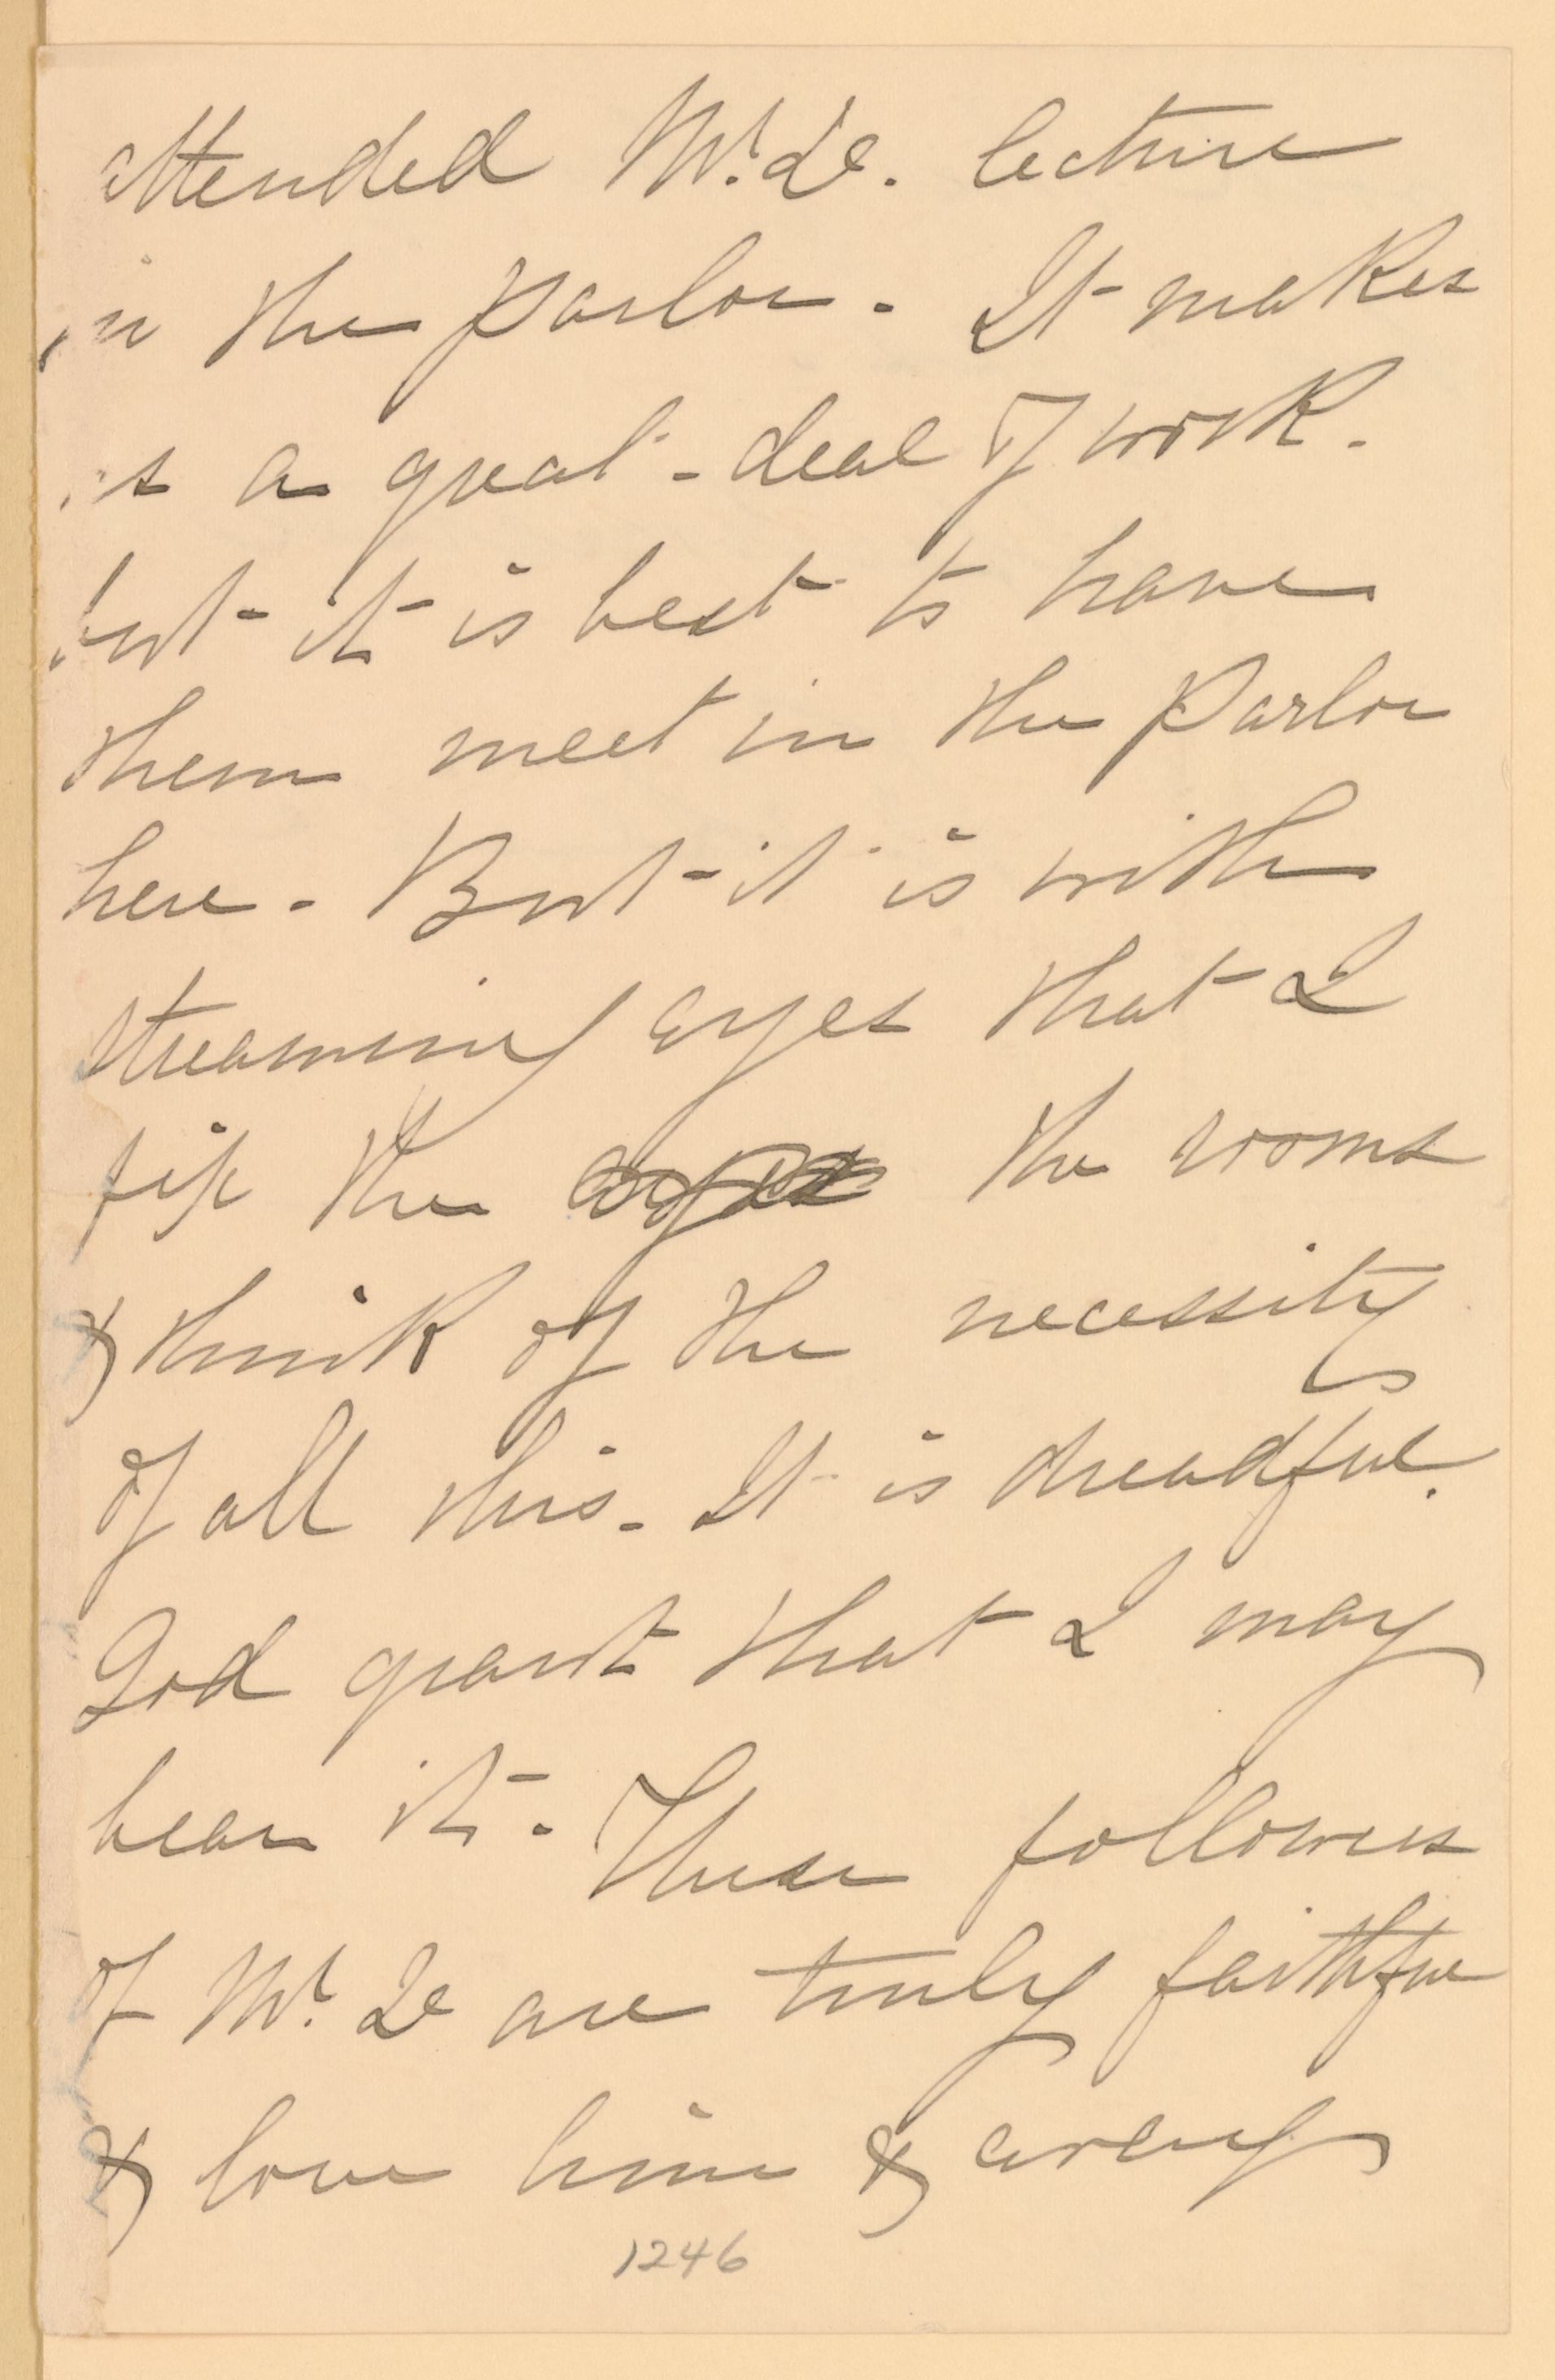 attended Mr. De. lecture
in the parlor. It makes
us a great deal of work.
but it is best to have
them meet in the Parlor
here. But it is with
streaming eyes that I
fix the eyes the rooms
& think of the necessity
of all this. It is dreadful.
God grant that I may
bear it. These followers
of Mr. De are truly faithful
& love him &
1246